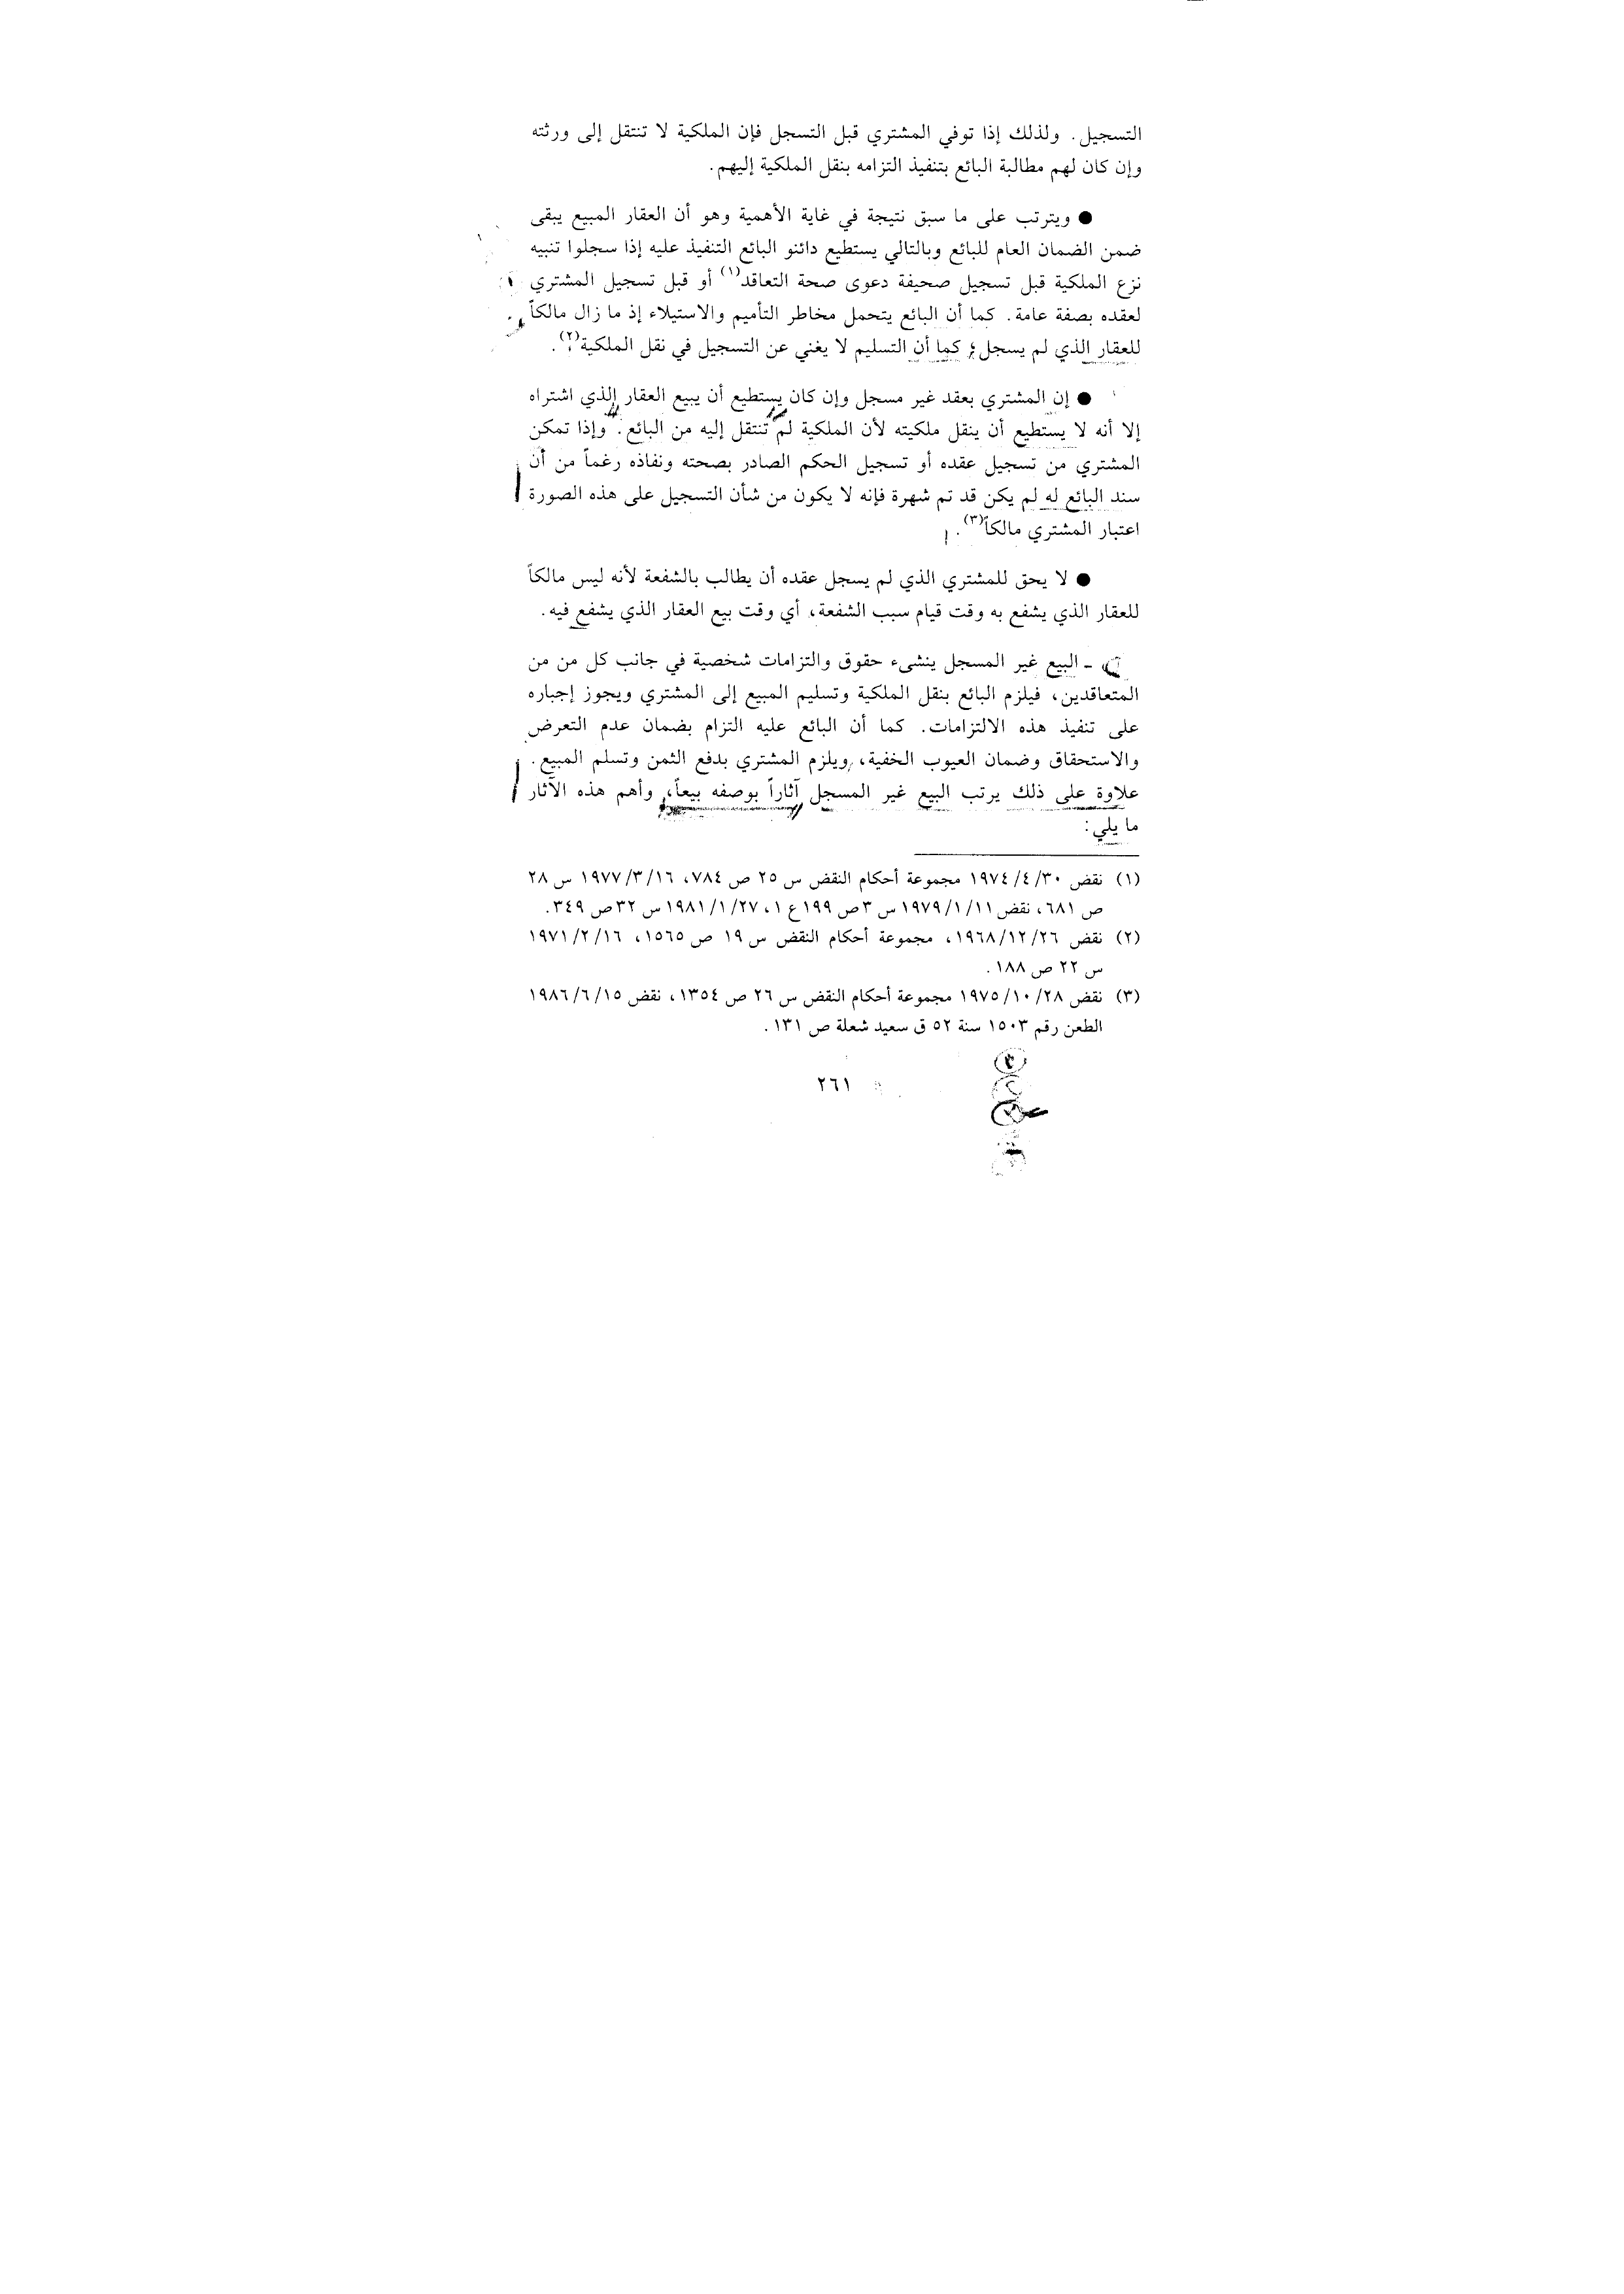 التسجيل. ولذلك إذا توفي المشتري قبل التسجل فإن الملكية لا تنتقل إلى ورثته
وإن كان لهم مطالبة البائع بتنفيذ التزامه بنقل الملكية إليهم.
● ويترتب على ما سبق نتيجة في غاية الأهمية وهو أن العقار المبيع يبقى
ضمن الضمان العام للبائع وبالتالي يستطيع دائنو البائع التنفيذ عليه إذا سجلوا تنبيه
نزع الملكية قبل تسجيل صحيفة دعوى صحة التعاقد(١) أو قبل تسجيل المشتري
لعقده بصفة عامة. كما أن البائع يتحمل مخاطر التأميم والاستيلاء إذ ما زال مالكاً
للعقار الذي لم يسجل؛ كما أن التسليم لا يغني عن التسجيل في نقل الملكية(٢).
● إن المشتري بعقد غير مسجل وإن كان يستطيع أن يبيع العقار الذي اشتراه
إلا أنه لا يستطيع أن ينقل ملكيته لأن الملكية لم تنتقل إليه من البائع. وإذا تمكن
المشتري من تسجيل عقده أو تسجيل الحكم الصادر بصحته ونفاذه رغماً من أن
سند البائع له لم يكن قد تم شهرة فإنه لا يكون من شأن التسجيل على هذه الصورة
اعتبار المشتري مالكاً(٣).
● لا يحق للمشتري الذي لم يسجل عقده أن يطالب بالشفعة لأنه ليس مالكاً
للعقار الذي يشفع به وقت قيام سبب الشفعة، أي وقت بيع العقار الذي يشفع فيه.
- البيع غير المسجل ينشىء حقوق والتزامات شخصية في جانب كل من من
المتعاقدين، فيلزم البائع بنقل الملكية وتسليم المبيع إلى المشتري ويجوز إجباره
على تنفيذ هذه الالتزامات. كما أن البائع عليه التزام بضمان عدم التعرض
والاستحقاق وضمان العيوب الخفية، ويلزم المشتري بدفع الثمن وتسلم المبيع.
علاوة على ذلك يرتب البيع غير المسجل آثاراً بوصفه بيعاً، وأهم هذه الآثار
ما يلي:
(١) نقض ١٩٧٤/٤/٣٠ مجموعة أحكام النقض س ٢٥ ص ٧٨٤، ١٩٧٧/٣/١٦ س ٢٨
ص ٦٨١، نقض ١٩٧٩/١/١١ س ٣ ص ١٩٩ ع ١، ١٩٨١/١/٢٧ س ٣٢ ص ٣٤٩.
(٢) نقض ١٩٦٨/١٢/٢٦، مجموعة أحكام النقض س ١٩ ص ١٥٦٥، ١٩٧١/٢/١٦
س ٢٢ ص ١٨٨.
(٣) نقض ١٩٧٥/١٠/٢٨ مجموعة أحكام النقض س ٢٦ ص ١٣٥٤، نقض ١٩٨٦/٦/١٥
الطعن رقم ١٥٠٣ سنة ٥٢ ق سعيد شعلة ص ١٣١.
٢٦١